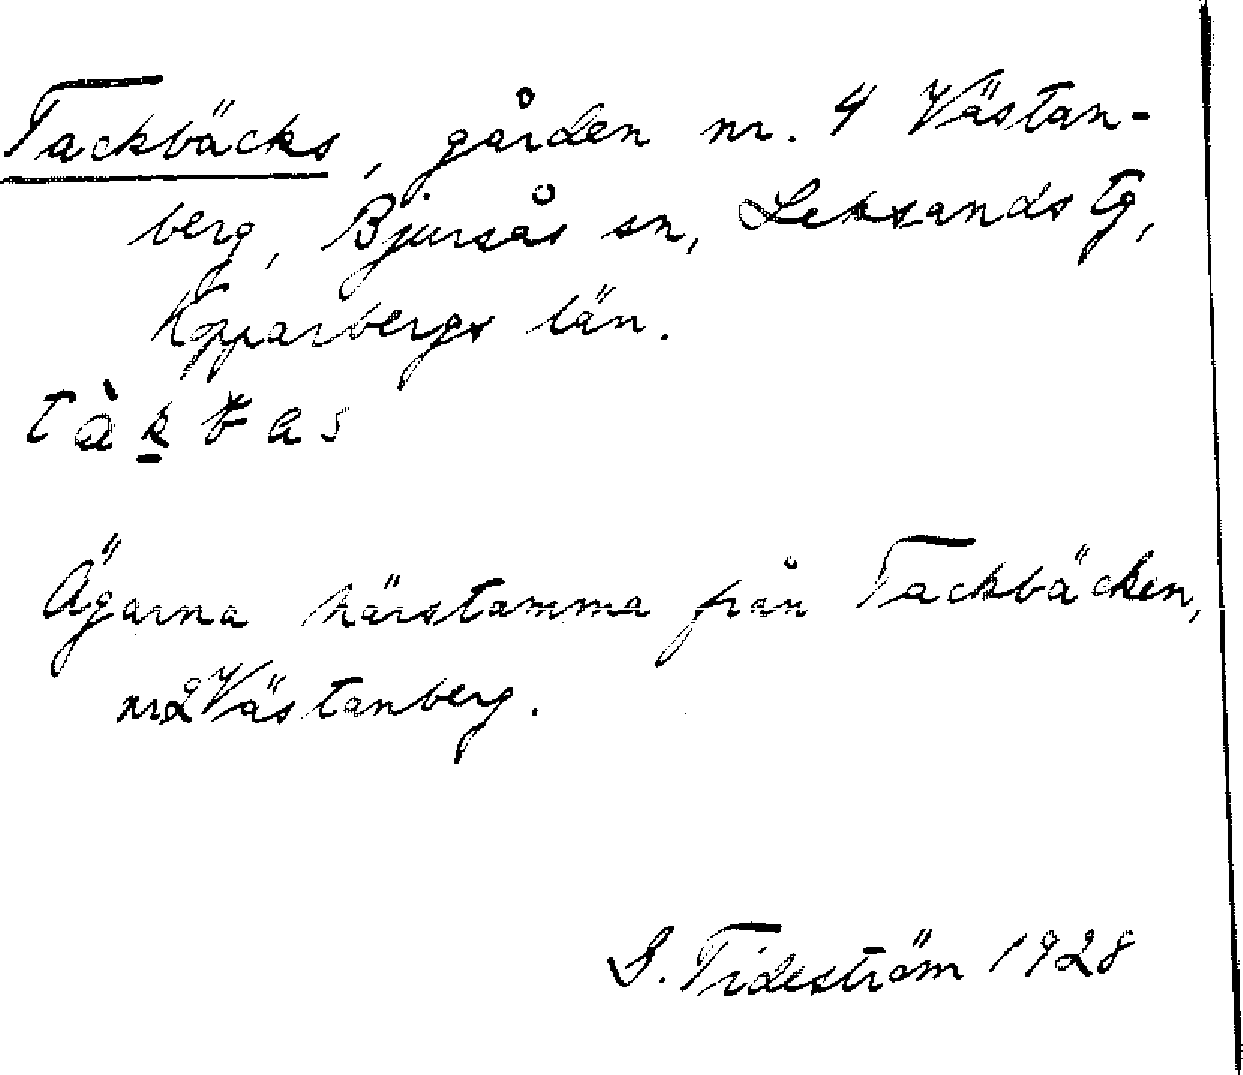 Tackbäcks, gården nr. 4 Västan-
berg, Bjursås sn, Leksands tg,
Kopparbergs län.
Ägarna härstamma från Tackbäcken,
nr 2 Västanberg.
S. Tideström 1928